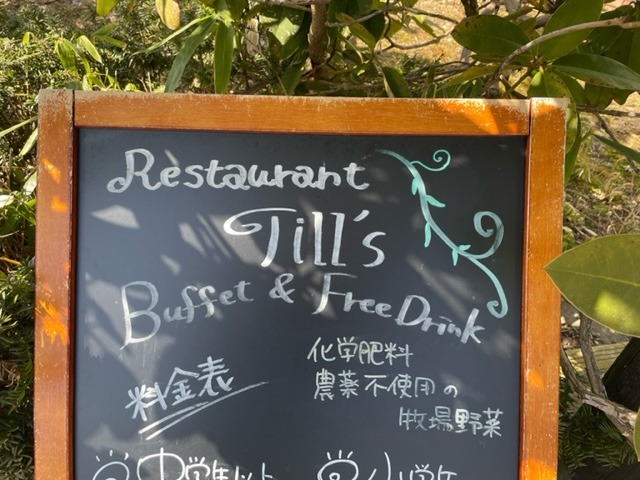 Restaurant
Till's
Buffet & Free Drink
料金表
化学肥料
農薬不使用の
牧場野菜
中学生以上
小学生